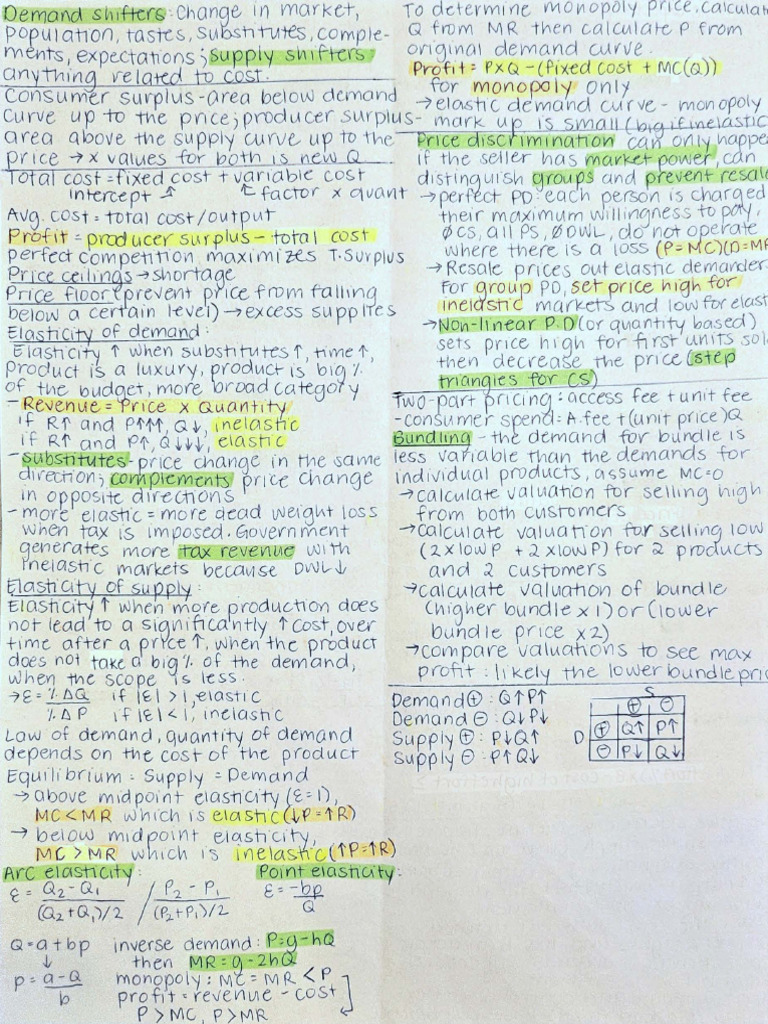 Demand shifters: Change in market,
population, tastes, substitutes, comple-
ments, expectations; supply shifters
anything related to cost.
Consumer surplus-area below demand
curve up to the price; producer surplus-
area above the supply curve up to the
price → x values for both is new Q
Total cost = fixed cost + variable cost
intercept ↗ ↖ factor x quant
Avg. cost = total cost/output
Profit = producer surplus - total cost
perfect competition maximizes T. Surplus
Price ceilings → shortage
Price floor (prevent price from falling
below a certain level) → excess supplies
Elasticity of demand:
Elasticity ↑ when substitutes ↑, time ↑,
product is a luxury, product is big %
of the budget, more broad category
- Revenue = Price x Quantity
if R↑ and P↑↑↑, Q↓, inelastic
if R↑ and P↑, Q↓↓↓, elastic
- substitutes - price change in the same
direction; complements price change
in opposite directions
- more elastic = more dead weight loss
when tax is imposed. Government
generates more tax revenue with
inelastic markets because DWL↓
Elasticity of supply:
Elasticity ↑ when more production does
not lead to a significantly ↑ cost, over
time after a price ↑, when the product
does not take a big % of the demand,
when the scope is less.
→ε = %ΔQ if |ε| > 1, elastic
%ΔP if |ε| < 1, inelastic
Law of demand, quantity of demand
depends on the cost of the product
Equilibrium = Supply = Demand
→ above midpoint elasticity (ε=1),
MC < MR which is elastic (↓P=↑R)
→ below midpoint elasticity,
MC > MR which is inelastic (↑P=↑R)
Arc elasticity: Point elasticity:
ε = Q2 - Q1 / P2 - P1 ε = -bp
(Q2+Q1)/2 (P2+P1)/2 Q
Q = a + bp inverse demand: P=g-hQ
↓ then MR = g-2hQ
p = a-Q monopoly: MC = MR < P
b profit = revenue - cost
P > MC, P > MR
To determine monopoly price, calculat
Q from MR then calculate P from
original demand curve.
Profit = P x Q - (fixed cost + MC(Q))
for monopoly only
→ elastic demand curve - monopoly
mark up is small (big if inelastic
Price discrimination can only happe
if the seller has market power, can
distinguish groups and prevent resale
→ perfect PD: each person is charged
their maximum willingness to pay,
∅CS, all PS, ∅DWL, do not operate
where there is a loss (P=MC)(D=MR
→ Resale prices out elastic demander.
For group PD, set price high for
inelastic markets and low for elast
→ Non-linear P.D (or quantity based)
sets price high for first units sol
then decrease the price (step
triangles for CS)
Two-part pricing: access fee + unit fee
- consumer spend = A.fee + (unit price)Q
Bundling - the demand for bundle is
less variable than the demands for
individual products, assume MC=0
→ calculate valuation for selling high
from both customers
→ calculate valuation for selling low
(2 x low P + 2 x low P) for 2 products
and 2 customers
→ calculate valuation of bundle
(higher bundle x 1) or (lower
bundle price x 2)
→ compare valuations to see max
profit: likely the lower bundle pric
Demand ⊕ : Q↑P↑
Demand ⊖ : Q↓P↓
Supply ⊕ : P↓Q↑
Supply ⊖ : P↑Q↓
S
⊕ ⊖
D ⊕ Q↑ P↑
⊖ P↓ Q↓